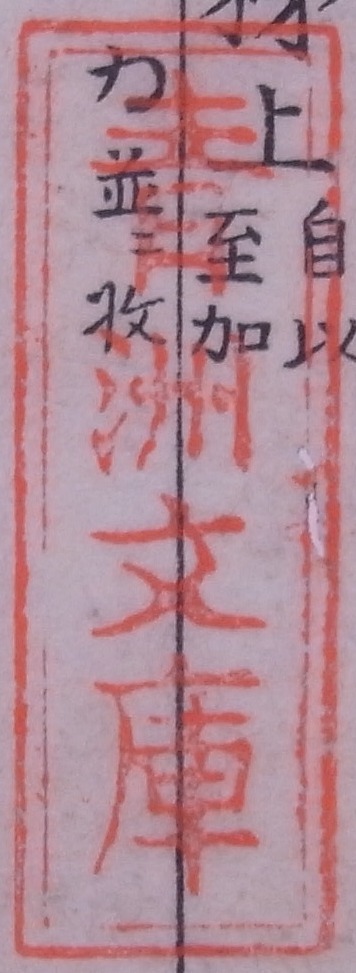 自以
上
至加
力並ニ收
青洲文庫